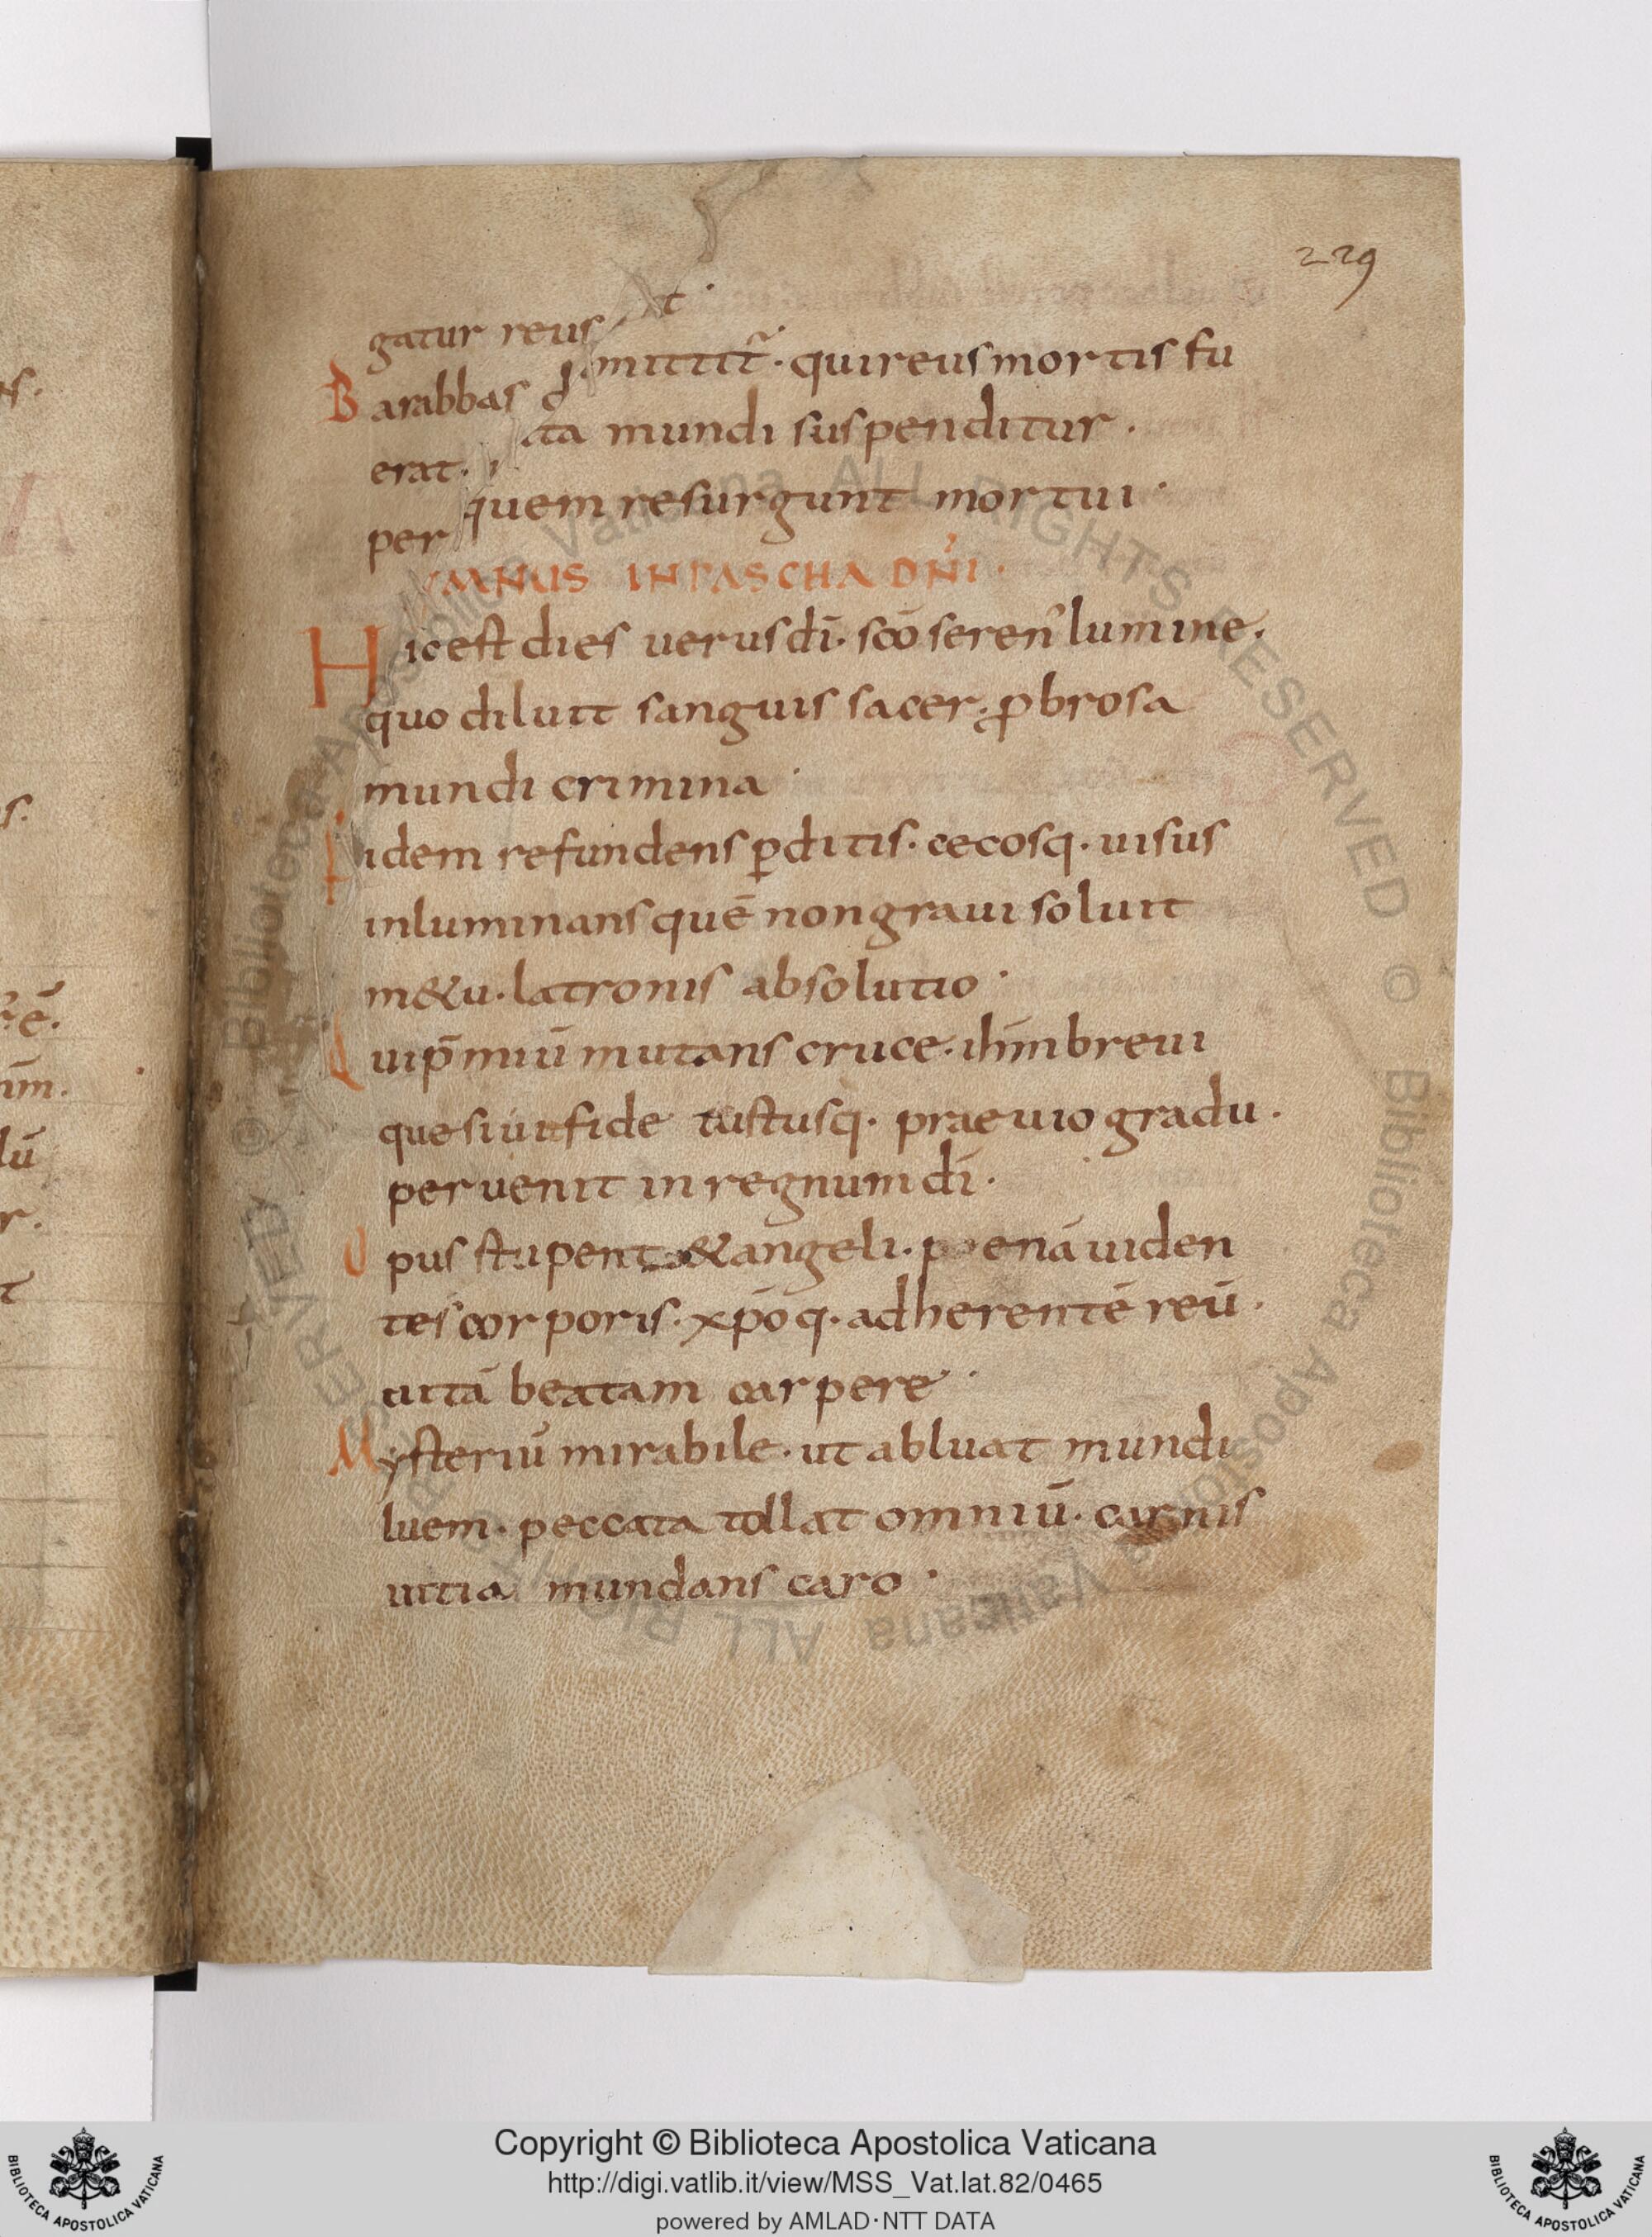 229
gatur reus
Barabbas dimittit̃. qui reus mortis fu
erat. uita mundi suspenditur.
per quem resurgunt mortui.
YMNUS IN PASCHA DÑI.
Hic est dies uerus dī. scō seren' lumine.
quo diluit sanguis sacer. ꝓbrosa
mundi crimina.
fidem refundens ꝑditis. cecosq. uisus
inluminans quē non graui soluit
m&u. latronis absolutio.
Qui p̄miū mutans cruce. ihm̄ breui
quesiuit fide iustusq. praeuio gradu.
peruenit in regnum dī.
Opus stupent & angeli. poenā uiden
tes corporis. xp̄oq. adherentē reū.
uitā beatam carpere.
Mysteriū mirabile. ut abluat mundi
luem. peccata tollat omniū. carnis
uitia mundans caro.
© Biblioteca Apostolica Vaticana ALL RIGHTS RESERVED © Biblioteca Apostolica Vaticana ALL RIGHTS RESERVED
Copyright © Biblioteca Apostolica Vaticana
http://digi.vatlib.it/view/MSS_Vat.lat.82/0465
powered by AMLAD·NTT DATA
BIBLIOTECA APOSTOLICA VATICANA
BIBLIOTECA APOSTOLICA VATICANA